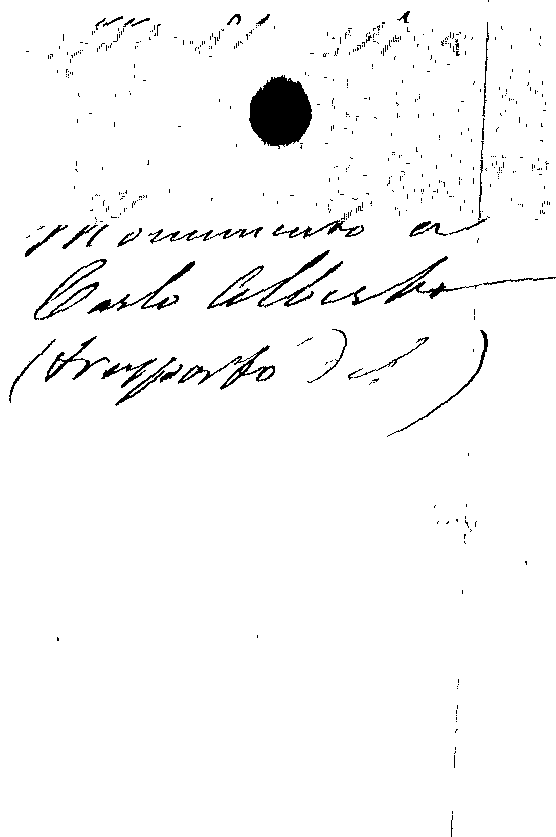 Monumento a
Carlo Alberto
(trasporto del)